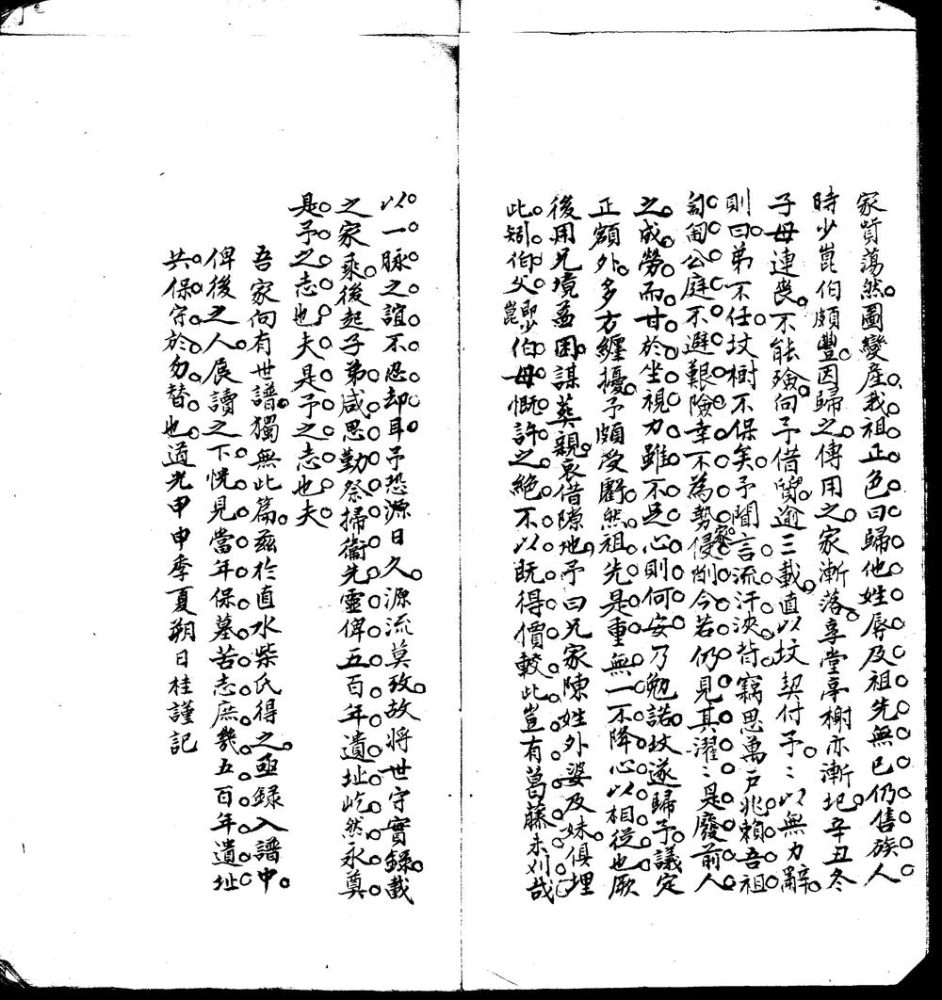 家貲蕩然圖變産我祖正色曰歸他姓辱及祖先無已仍售族人
時少崑伯頗豐因歸之傳用之家漸落享堂亭榭亦漸圮辛丑冬
子母連喪不能殮向予借貸逾三載直以坟契付予〻以無力辭
則曰弟不任坟樹不保矣予聞言流汗浹背竊思萬戶兆賴吾祖
匍匐公庭不避艱險幸不為勢家侵削今若仍見其濯〻是廢前人
之成勞而甘於坐視力雖不足心則何安乃勉諾坟遂歸予議定
正額外多方纏擾予頗受虧然祖先是重無一不降心以相從也厥
後用兄境益困謀葬親哀借隙地予曰兄家陳姓外婆及妹俱埋
此矧伯父即少崑伯母慨許之絕不以既得價較此豈有葛藤未刈哉
以一脉之誼不忍却耳予恐源日久源流莫攷故将世守實錄載
之家乘後起子弟咸思勤祭掃衞先靈俾五百年遺址屹然永奠
是予之志也夫是予之志也夫
吾家向有世譜獨無此篇茲於直水柴氏得之亟錄入譜中
俾後之人展讀之下恍見當年保墓苦志庶幾五百年遺址
共保守於勿替也道光甲申季夏朔日桂謹記